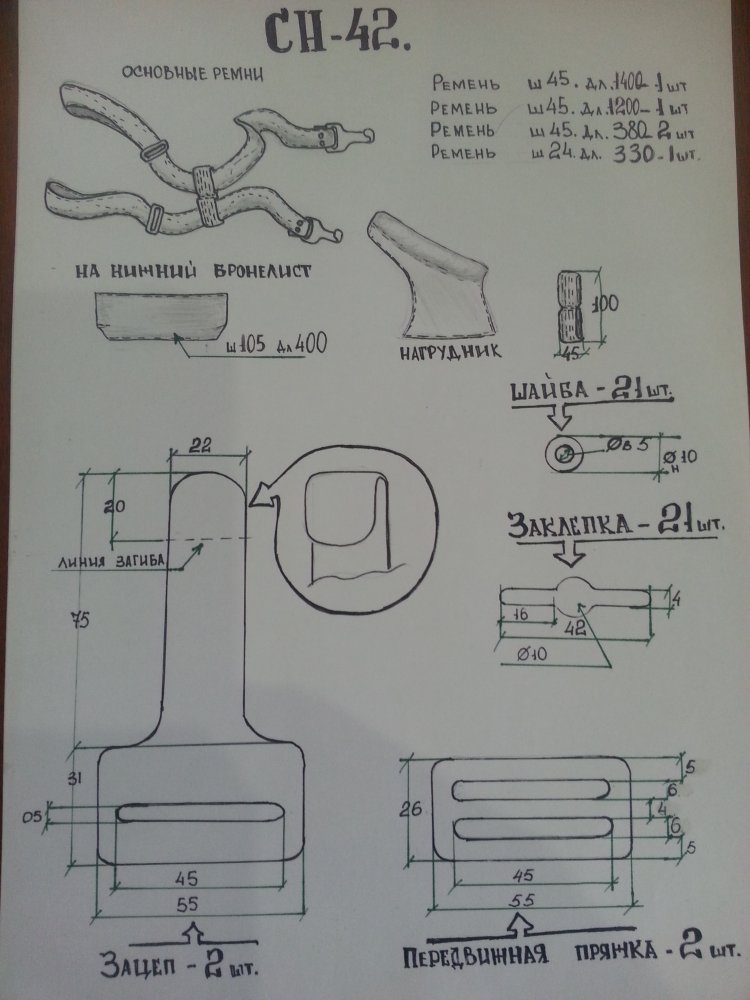 СН-42.
ОСНОВНЫЕ РЕМНИ
РЕМЕНЬ ш 45. дл. 1400-1 шт
РЕМЕНЬ ш 45. дл. 1200-1 шт
РЕМЕНЬ ш 45. дл. 380-2 шт
РЕМЕНЬ ш 24. дл. 330-1 шт.
НА НИЖНИЙ БРОНЕЛИСТ
ш 105 дл 400
НАГРУДНИК
100
45
ШАЙБА - 21 шт.
Øв 5
Ø 10
н
ЗАКЛЕПКА - 21 шт.
4
16
42
Ø10
22
20
ЛИНИЯ ЗАГИБА
75
31
05
45
55
ЗАЦЕП - 2 шт.
26
5
6
4
6
5
45
55
ПЕРЕДВИЖНАЯ ПРЯЖКА - 2 шт.